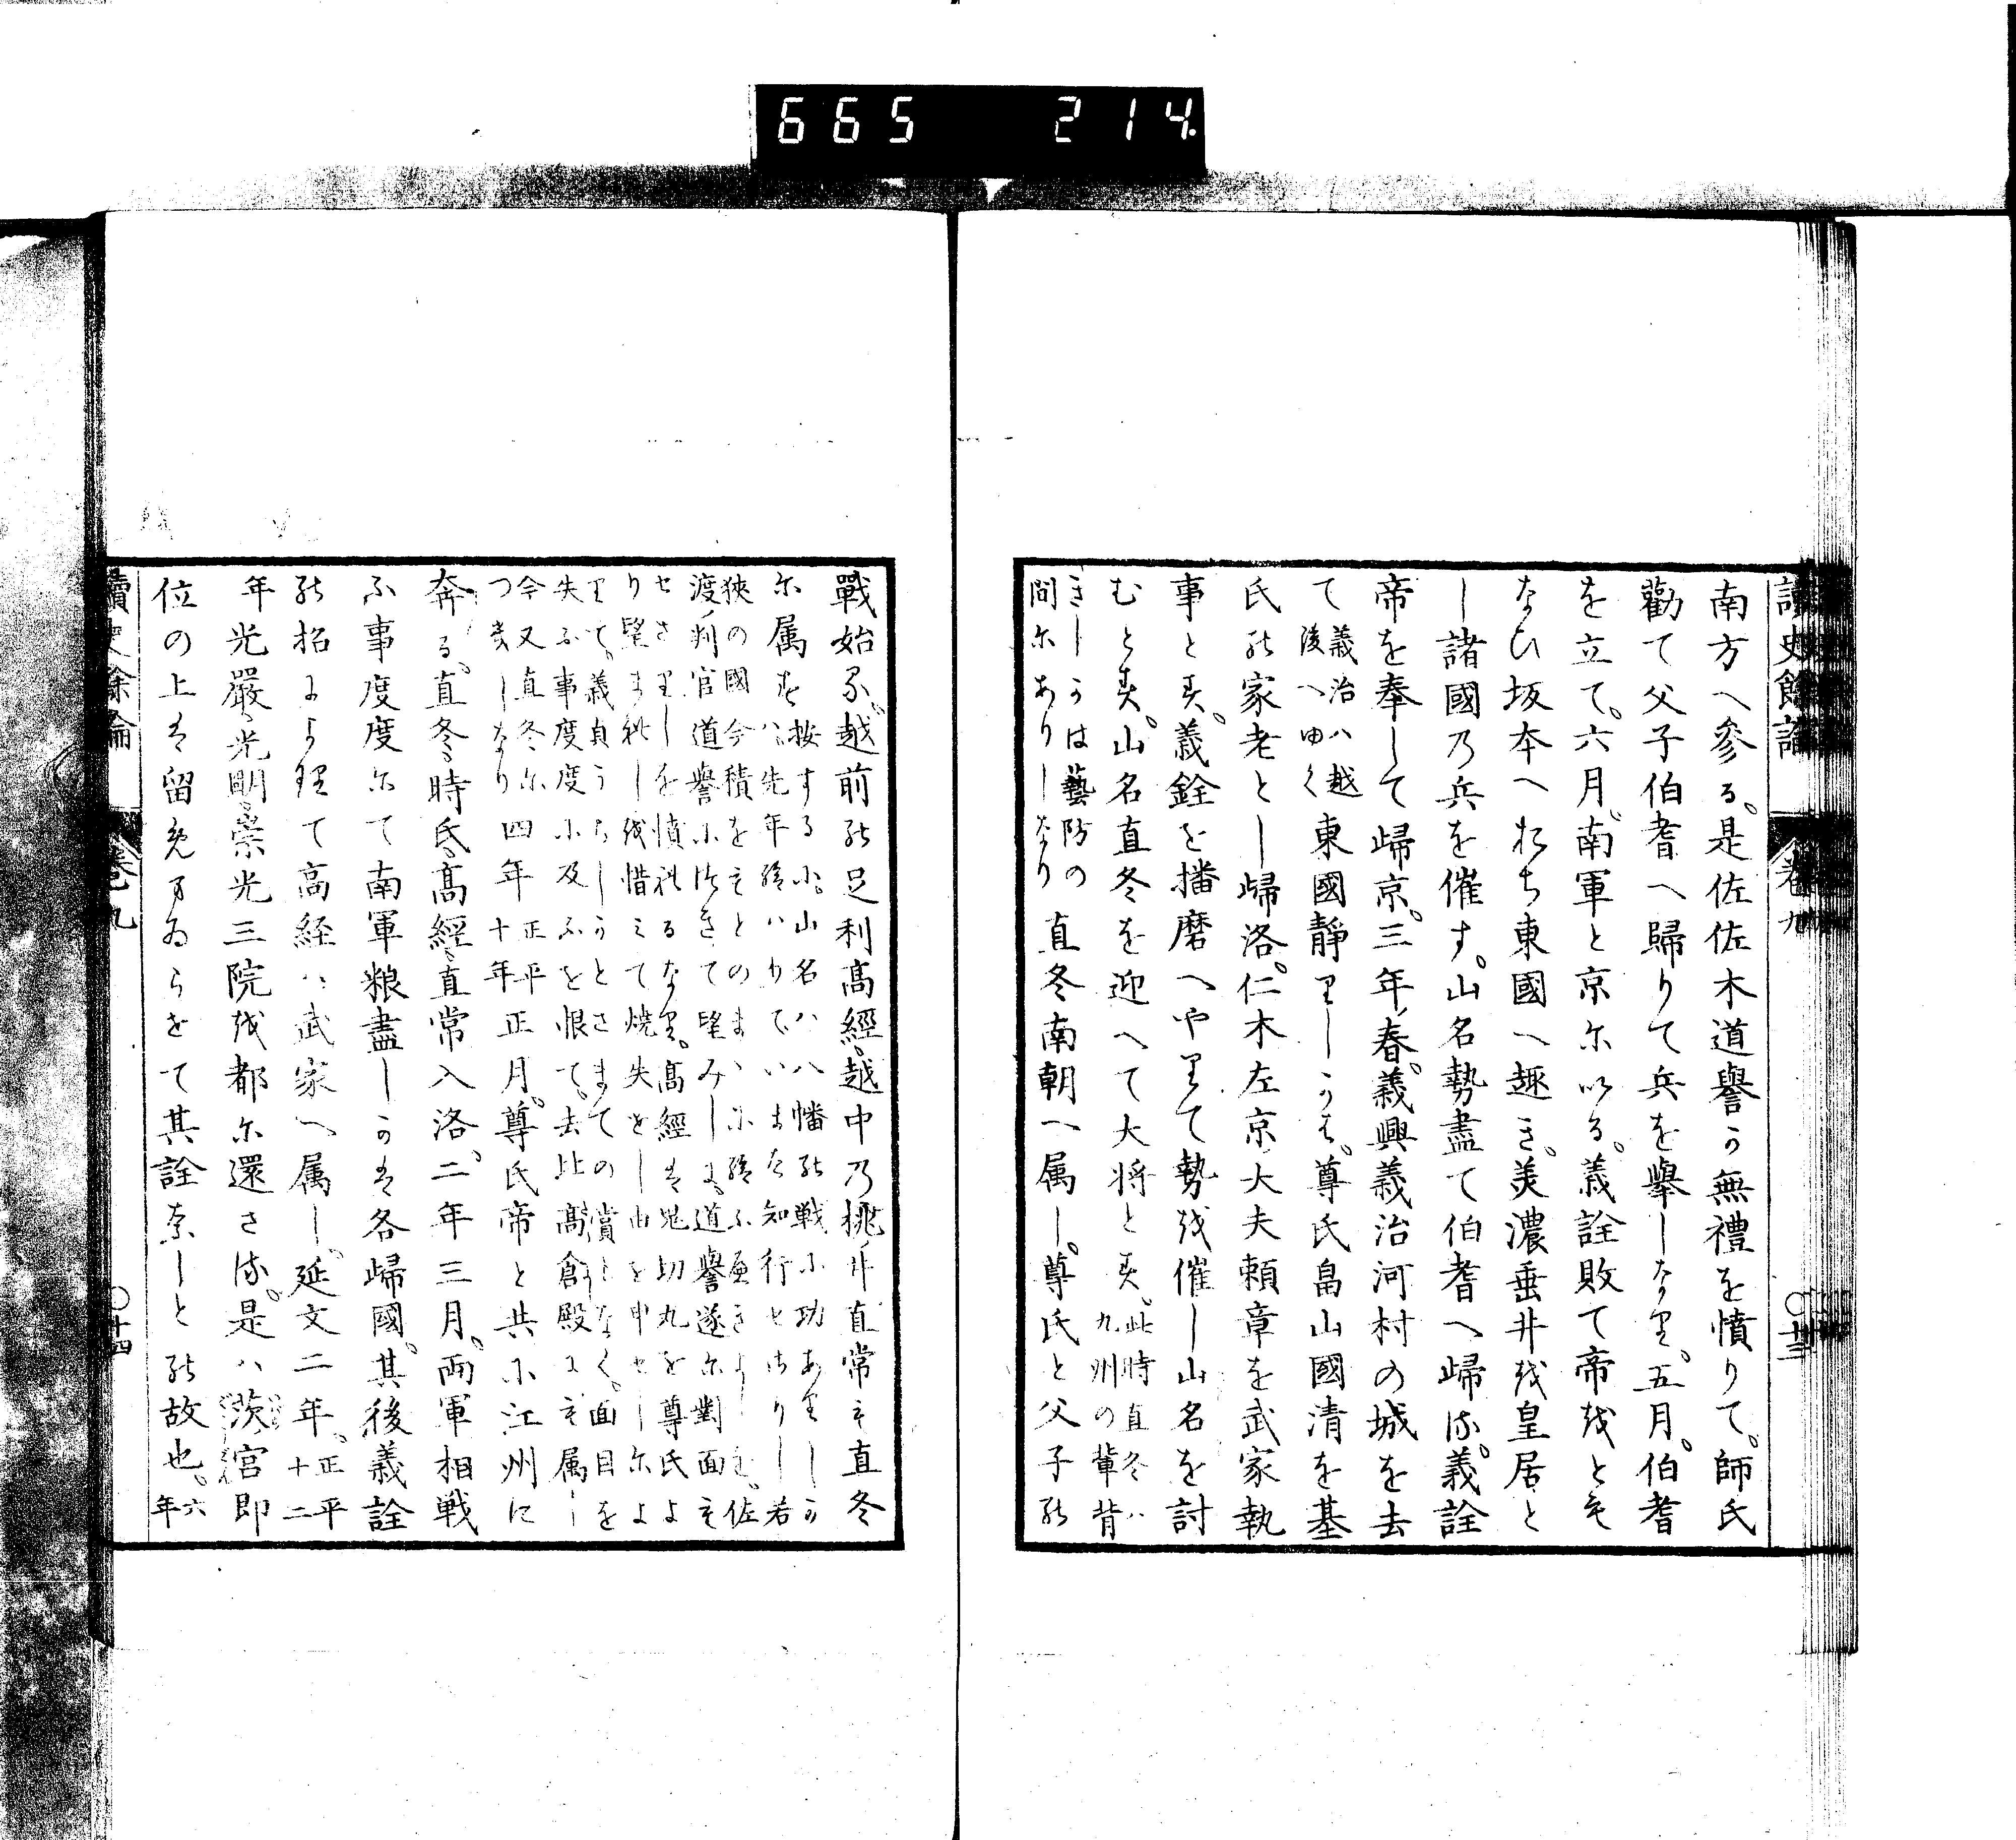 665 214
讀史餘論 卷九 〇十三
南方へ參る。是佐佐木道譽か無禮を憤りて。師氏
勸て父子伯耆へ歸りて兵を擧しなり。五月。伯耆
を立て。六月。南軍と京に戰る。義詮敗て帝をとも
なひ坂本へおち東國へ趣き。美濃垂井を皇居と
し諸國乃兵を催す。山名勢盡て伯耆へ歸る。義詮
帝を奉して歸京。三年。春。義興義治河村の城を去
て
義治ハ越
後へゆく
東國靜りしかは。尊氏畠山國清を基
氏の家老とし歸洛。仁木左京大夫頼章を武家執
事とす。義銓を播磨へやりて勢を催し山名を討
むとす。山名直冬を迎へて大将とす。
此時直冬ハ
九州の輩背
きしかは藝防の
間にありしなり
直冬南朝へ属し。尊氏と父子の
戰始る。越前の足利髙經。越中乃桃井直常も直冬
に属す。
按するに。山名ハ八幡の戰に功ありしか
ハ先年給はりていまた知行せさりし若
狹の國今積をもとのまゝに給ふへきよしを。佐
渡判官道譽に付きて望みしに。道譽遂に對面も
せさりしを憤れるなり。髙經は鬼切丸を尊氏よ
り望まれし を惜みて燒失せし由を申せしによ
りて。義貞うちしかとさまての賞もなく。面目を
失ふ事度度に及ふを恨て。去比髙倉殿にも属し
今又直冬に
つきしなり
四年
正平
十年
正月。尊氏帝と共に江州に
奔る。直冬。時氏。髙經。直常入洛。二年三月。兩軍相戰
ふ事度度にて南軍粮盡しかは各歸國。其後義詮
の招によりて高経ハ武家へ属し。延文二年。
正平
十二
年
光嚴。光明。崇光三院を都に還さる。是ハ茨宮即
位の上は留先まゐらせて其詮なしとの故也。
六
年
讀史餘論 卷九 〇十四